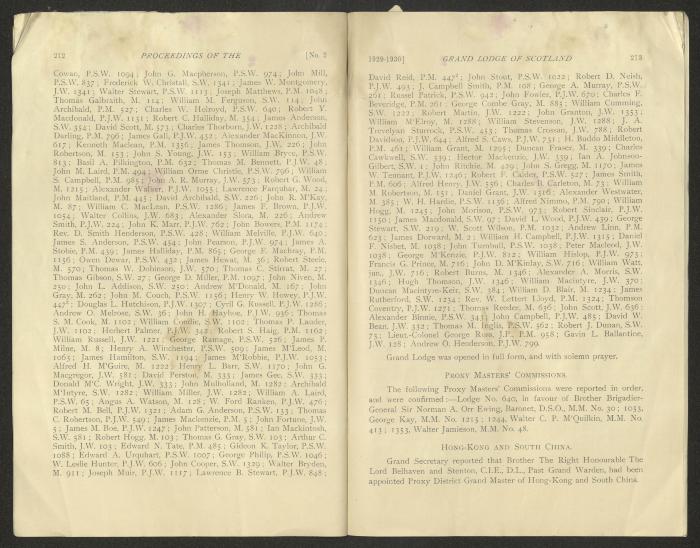 212 PROCEEDINGS OF THE [No. 2
Cowan, P.S.W. 1094; John G. Macpherson, P.S.W. 974; John Mill,
P.S.W. 837; Frederick W. Christall, S.W. 1341; James W. Montgomery,
J.W. 1341; Walter Stewart, P.S.W. 1113; Joseph Matthews, P.M. 1048;
Thomas Galbraith, M. 114; William M. Ferguson, S.W. 114; John
Archibald, P.M. 527; Charles W. Holroyd, P.S.W. 640; Robert Y.
Macdonald, P.J.W. 1151; Robert C. Halliday, M. 354; James Anderson,
S.W. 354; David Scott, M. 573; Charles Thorborn, J.W. 1228; Archibald
Darling, P.M. 796; James Gall, P.J.W. 452; Alexander MacKinnon, J.W.
617; Kenneth Maclean, P.M. 1336; James Thomson, J.W. 226; John
Robertson, M. 153; John S. Young, J.W. 153; William Bryce, P.S.W.
813; Basil A. Pilkington, P.M. 652; Thomas M. Bennett, P.J.W. 48;
John M. Laird, P.M. 494; William Orme Christie, P.S.W. 796; William
S. Campbell, P.M. 985; John A. R. Murray, J.W. 573; Robert G. Wood,
M. 1215; Alexander Walker, P.J.W. 1055; Lawrence Farquhar, M. 24;
John Maitland, P.M. 445; David Archibald, S.W. 226; John R. M'Kay,
M. 87; William C. MacLean, P.S.W. 1286; James F. Brown, P.J.W.
1054; Walter Collins, J.W. 683; Alexander Slora, M. 226; Andrew
Smith, P.J.W. 224; John K. Marr, P.J.W. 762; John Bowers, P.M. 1174;
Rev. D. Smith Henderson, P.S.W. 428; William Melville, P.J.W. 640;
James S. Anderson, P.S.W. 454; John Pearson, P.J.W. 974; James A.
Stobie, P.M. 439; James Halliday, P.M. 865; George F. Machray, P.M.
1156; Owen Dewar, P.S.W. 432; James Hewat, M. 36; Robert Steele,
M. 570; Thomas W. Dobinson, J.W. 570; Thomas C. Stirrat, M. 27;
Thomas Gibson, S.W. 27; George D. Miller, P.M. 1097; John Niven, M.
250; John L. Addison, S.W. 250; Andrew M'Donald, M. 167; John
Gray, M. 262; John M. Couch, P.S.W. 1156; Henry W. Howey, P.J.W.
447; Douglas L. Hutchison, P.J.W. 1307; Cyril G. Russell, P.J.W. 1286;
Andrew O. Melrose, S.W. 36; John H. Hayhoe, P.J.W. 936; Thomas
S. M. Cook, M. 1102; William Condie, S.W. 1102; Thomas P. Lauder,
J.W. 1102; Herbert Palmer, P.J.W. 342; Robert S. Haig, P.M. 1162;
William Russell, J.W. 1221; George Ramage, P.S.W. 526; James P.
Milne, M. 8; Henry A. Winchester, P.S.W. 509; James M'Leod, M.
1065; James Hamilton, S.W. 1194; James M'Robbie, P.J.W. 1053;
Alfred H. M'Guire, M. 1222; Henry L. Barr, S.W. 1170; John G.
Macgregor, J.W. 581; David Perston, M. 333; James Gee, S.W. 333;
Donald M'C. Wright, J.W. 333; John Mulholland, M. 1282; Archibald
M'Intyre, S.W. 1282; William Miller, J.W. 1282; William A. Laird,
P.S.W. 65; Angus A. Watson, M. 128; W. Ford Ranken, P.J.W. 476;
Robert M. Bell, P.J.W. 1321; Adam G. Anderson, P.S.W. 133; Thomas
C. Robertson, P.J.W. 549; James Mackenzie, P.M. 5; John Fortune, J.W.
5; James M. Boe, P.J.W. 1247; John Patterson, M. 581; Ian Mackintosh,
S.W. 581; Robert Hogg, M. 103; Thomas G. Gray, S.W. 103; Arthur C.
Smith, J.W. 103; Edward N. Tate, P.M. 485; Gideon K. Taylor, P.S.W.
1088; Edward A. Urquhart, P.S.W. 1007; George Philip, P.S.W. 1046;
W. Leslie Hunter, P.J.W. 606; John Cooper, S.W. 1329; Walter Bryden,
M. 911; Joseph Muir, P.J.W. 1117; Lawrence B. Stewart, P.J.W. 848;
1929-1930] GRAND LODGE OF SCOTLAND 213
David Reid, P.M. 447; John Stout, P.S.W. 1022; Robert D. Neish,
P.J.W. 493; J. Campbell Smith, P.M. 108; George A. Murray, P.S.W.
261; Russel Patrick, P.S.W. 942; John Fowler, P.J.W. 670; Charles F.
Beveridge, P.M. 261; George Combe Gray, M. 885; William Cumming,
S.W. 1222; Robert Martin, J.W. 1222; John Granton, J.W. 1353;
William M'Elroy, M. 1288; William Stevenson, J.W. 1288; J. A.
Trevelyan Sturrock, P.S.W. 453; Thomas Crossan, J.W. 788; Robert
Davidson, P.J.W. 644; Alfred S. Caws, P.J.W. 731; H. Buddo Middleton,
P.M. 463; William Grant, M. 1295; Duncan Fraser, M. 339; Charles
Cawkwell, S.W. 339; Hector Mackenzie, J.W. 339; Ian A. Johnson-
Gilbert, S.W. 1; John Ritchie, M. 429; John S. Gregg, M. 1170; James
W. Tennant, P.J.W. 1246; Robert F. Calder, P.S.W. 527; James Smith,
P.M. 606; Alfred Henry, J.W. 556; Charles B. Carleton, M. 73; William
M. Robertson, M. 151; Daniel Grant, J.W. 1316; Alexander Westwater,
M. 385; W. H. Hardie, P.S.W. 1136; Alfred Nimmo, P.M. 790; William
Hogg, M. 1245; John Morison, P.S.W. 973; Robert Sinclair, P.J.W.
1150; James Macdonald, S.W. 97; David L. Wood, P.J.W. 459; George
Stewart, S.W. 219; W. Scott Wilson, P.M. 1032; Andrew Linn, P.M.
623; James Dorward, M. 2; William H. Campbell, P.J.W. 1315; David
F. Nisbet, M. 1038; John Turnbull, P.S.W. 1038; Peter Macleod, J.W.
1038; George M'Kenzie, P.J.W. 822; William Hislop, P.J.W. 973;
Francis G. Prince, M. 716; John D. M'Kinlay, S.W. 716; William Watt,
jun., J.W. 716; Robert Burns, M. 1346; Alexander A. Morris, S.W.
1346; Hugh Thomson, J.W. 1346; William Macintyre, J.W. 370;
Duncan Macintyre-Keir, S.W. 384; William D. Blair, M. 1234; James
Rutherford, S.W. 1234; Rev. W. Lettert Lloyd, P.M. 1324; Thomson
Coventry, P.J.W. 1271; Thomas Reeder, M. 656; John Scott, J.W. 656;
Alexander Binnie, P.S.W. 343; John Campbell, P.J.W. 485; David W.
Bean, J.W. 332; Thomas M. Inglis, P.S.W. 562; Robert J. Dunan, S.W.
75; Lieut.-Colonel George Ross, J.P., P.M. 958; Gavin L. Ballantine,
J.W. 128; Andrew O. Henderson, P.J.W. 799.
Grand Lodge was opened in full form, and with solemn prayer.
PROXY MASTERS' COMMISSIONS.
The following Proxy Masters' Commissions were reported in order,
and were confirmed:—Lodge No. 640, in favour of Brother Brigadier-
General Sir Norman A. Orr Ewing, Baronet, D.S.O., M.M. No. 30; 1033,
George Kay, M.M. No. 1215; 1244, Walter C. P. M'Quilkin, M.M. No.
413; 1353, Walter Jamieson, M.M. No. 48.
HONG-KONG AND SOUTH CHINA.
Grand Secretary reported that Brother The Right Honourable The
Lord Belhaven and Stenton, C.I.E., D.L., Past Grand Warden, had been
appointed Proxy District Grand Master of Hong-Kong and South China.